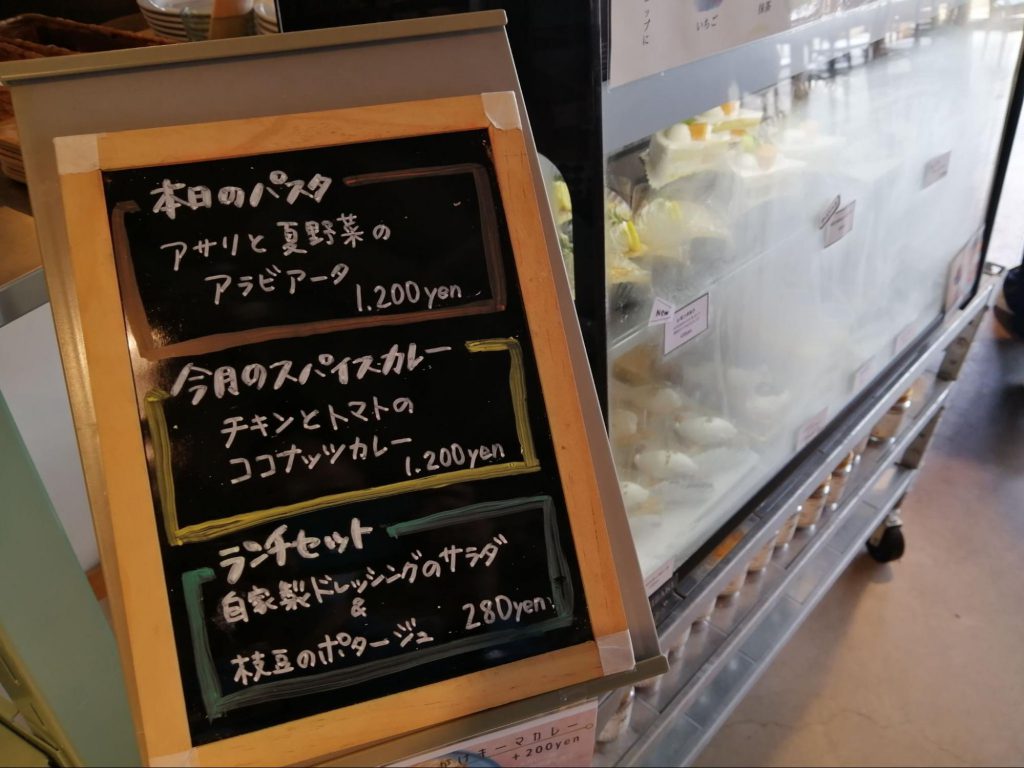 本日のパスタ
アサリと夏野菜の
アラビアータ
1.200yen
今月のスパイスカレー
チキンとトマトの
ココナッツカレー
1.200yen
ランチセット
自家製ドレッシングのサラダ
&
枝豆のポタージュ
280yen
がけキーマカレーへ
+200yen
ップに
いちご
抹茶
New